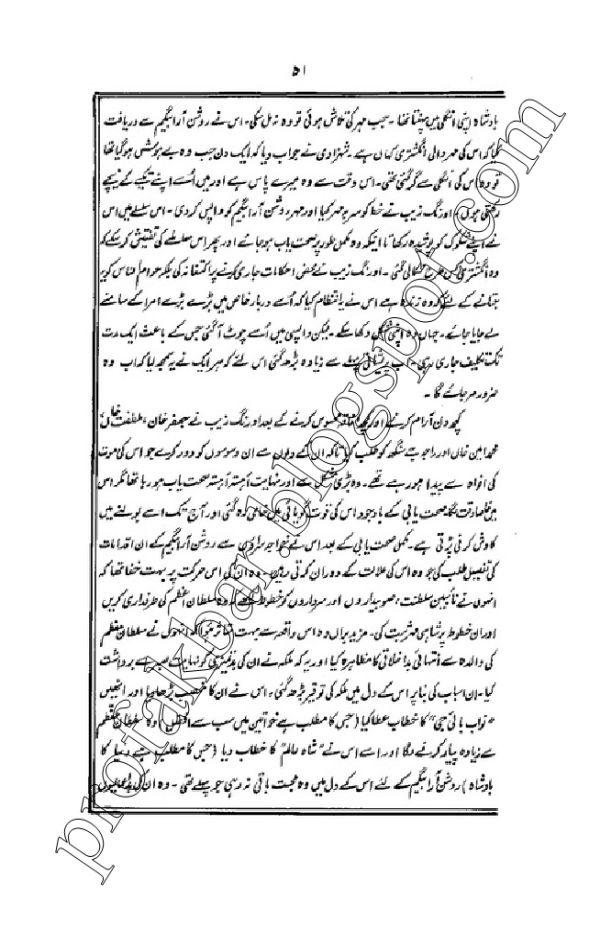 ۵۱
بادشاہ اپنی انگلی میں پہنتا تھا۔ جب مہر کی تلاش ہوئی تو وہ نہ مل سکی۔ اس نے روشن آرا بیگم سے دریافت
کیا کہ اس کی مہر والی انگشتری کہاں ہے۔ شہزادی نے جواب دیا کہ ایک دن جب وہ بے ہوش ہو گیا تھا
تو وہ اس کی انگلی سے گر گئی تھی۔ اس وقت سے وہ میرے پاس ہے اور میں اُسے اپنے تکیے کے نیچے
رکھتی ہوں۔ اورنگ زیب نے خط کو سر بمہر کیا اور مہر روشن آرا بیگم کو واپس کر دی۔ اس سلسلے میں اس
نے اپنے شکوک کو پوشیدہ رکھا تا آنکہ وہ مکمل طور پر صحت یاب ہو جائے اور پھر اس معاملے کی تفتیش کر سکے کہ
وہ انگشتری کس طرح نکالی گئی۔ اورنگ زیب نے محض احکامات جاری کرنے پر اکتفا نہ کی بلکہ عوام الناس کو یہ
جتانے کے لئے کہ وہ زندہ ہے اس نے یہ انتظام کیا کہ اُسے دربار خاص میں بڑے بڑے امرا کے سامنے
لے جایا جائے۔ جہاں وہ اپنی شکل دکھا سکے۔ لیکن واپسی میں اُسے چوٹ آ گئی جس کے باعث ایک مدت
تک تکلیف جاری رہی۔ اب پریشانی پہلے سے زیادہ بڑھ گئی اس لئے کہ ہر ایک نے یہ سمجھ لیا کہ اب وہ
ضرور مر جائے گا۔
کچھ دن آرام کرنے اور کچھ افاقہ محسوس کرنے کے بعد اورنگ زیب نے جعفر خان،
محمد امین خاں اور راجہ جے سنگھ کو طلب کیا تاکہ ان کے دلوں سے ان وسوسوں کو دور کرے جو اس کی موت
کی افواہ سے پیدا ہو رہے تھے۔ وہ بڑی مشکل سے اور نہایت آہستہ آہستہ صحت یاب ہو رہا تھا مگر اس
میں صحت یابی کے باوجود اس کی قوت گویائی میں خامی رہ گئی اور آج تک اسے بولنے میں
کاوش کرنی پڑتی ہے۔ مکمل صحت یابی کے بعد اس نے خواجہ سراؤں سے روشن آرا بیگم کے ان اقدامات
کی تفصیل طلب کی جو وہ اس کی علالت کے دوران کرتی رہیں۔ وہ ان کی اس حرکت پر بہت خفا تھا کہ
انہوں نے نائبین سلطنت، صوبیداروں اور سرداروں کو خطوط لکھے کہ وہ سلطان اعظم کی طرفداری کریں
اور ان خطوط پر شاہی مہر ثبت کی۔ مزید براں وہ اس واقعہ سے بہت متاثر ہوا کہ انہوں نے سلطان معظم
کی والدہ سے انتہائی بد اخلاقی کا مظاہرہ کیا اور یہ کہ ملکہ نے ان کی بدتمیزی کو نہایت صبر سے برداشت
کیا۔ ان اسباب کی بنا پر اس کے دل میں ملکہ کی توقیر بڑھ گئی۔ اس نے ان کا منصب بڑھا دیا اور انھیں
"نواب بائی جی" کا خطاب عطا کیا (جس کا مطلب ہے خواتین میں سب سے افضل) وہ سلطان معظم
سے زیادہ پیار کرنے لگا اور اسے اس نے "شاہ عالم" کا خطاب دیا (جس کا مطلب ہے دنیا کا
بادشاہ) روشن آرا بیگم کے لئے اس کے دل میں وہ محبت باقی نہ رہی جو پہلے تھی۔ وہ ان کی
profakbar.blogspot.com